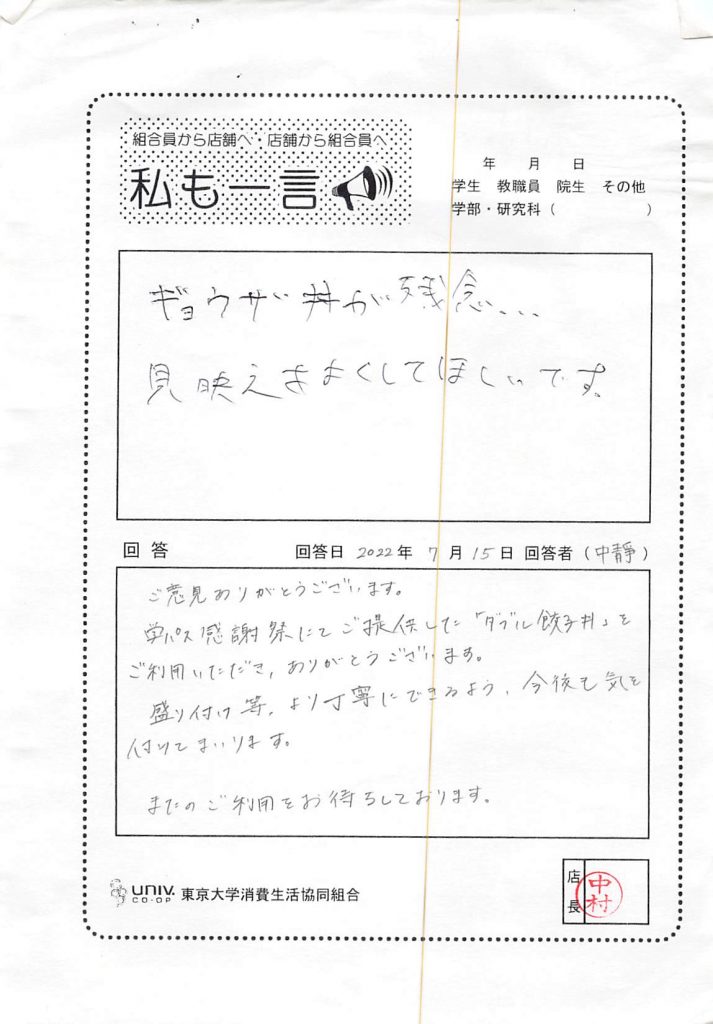 組合員から店舗へ・店舗から組合員へ
私も一言
年 月 日
学生 教職員 院生 その他
学部・研究科( )
ギョウザ丼が残念...
見映えをよくしてほしいです。
回答 回答日 2022年 7月 15日 回答者(中靜)
ご意見ありがとうございます。
学パス感謝祭にてご提供した「ダブル餃子丼」を
ご利用いただき、ありがとうございます。
盛り付け等、より丁寧にできるよう、今後も気を
付けてまいります。
またのご利用をお待ちしております。
UNIV. CO-OP 東京大学消費生活協同組合
店長 中村